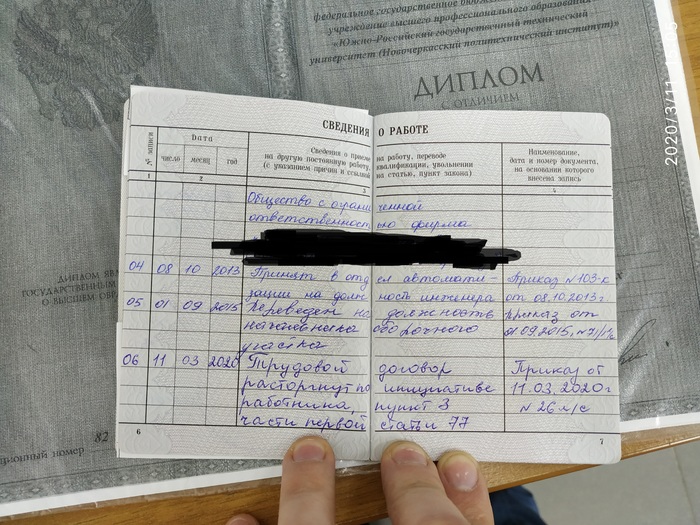 федеральное государственное бюджетное
учреждение высшего профессионального образования
«Южно-Российский государственный технический
университет (Новочеркасский политехнический институт)»
ДИПЛОМ
С ОТЛИЧИЕМ
2020/3/11
СВЕДЕНИЯ О РАБОТЕ
№ записи
Дата
число месяц год
Сведения о приеме на работу, переводе
на другую постоянную работу, квалификации, увольнении
(с указанием причин и ссылкой на статью, пункт закона)
Наименование,
дата и номер документа,
на основании которого
внесена запись
1 2 3 4
Общество с ограниченной
ответственностью фирма
04 08 10 2013 Принят в отдел автомати- Приказ №103-к
зации на должность инженера от 08.10.2013г
05 01 09 2015 Переведен на должность приказ от
начальника сборочного 01.09.2015,
участка
06 11 03 2020 Трудовой договор Приказ от
расторгнут по инициативе 11.03.2020г
работника, пункт 3 №26 л/с
части первой статьи 77
6 7
ДИПЛОМ
ГОСУДАРСТВЕННЫМ
О ВЫСШЕМ
82
ционный номер